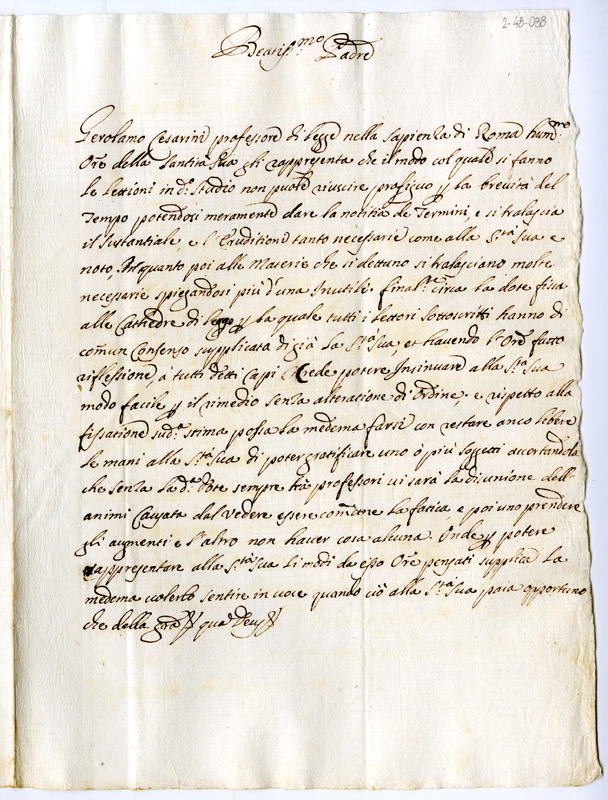 2-48-038
Beatiss.mo Padre
Gerolamo Cesarini professore di legge nella Sapienza di Roma hum.mo
Ore della Santità Sua gli rappresenta che il modo col quale si fanno
le lettioni in d.o Studio non puole riuscire proficuo p la brevità del
Tempo potendosi meramente dare la notitia de Termini, e si tralascia
il sustantiale, e l'Eruditioni tanto necessarie come alla S.tà Sua e
noto, In quanto poi alle Materie che si dettano si tralasciano molte
necessarie spiegandosi più d'una Inutile. final.e circa la dote fissa
alle Cathedre di legge p la quale tutti i lettori sottoscritti hanno di
com̃un Consenso supplicata di già la S.tà Sua, et havendo l'Ore fatto
riflessione, à tutti detti capi Crede potere Insinuare alla S.tà Sua
modo facile p il rimedio senza alteratione di ordine, e rispetto alla
fissatione sud.a stima possa la medema farsi con restare anco libere
le mani alla S.tà Sua di poter gratificare uno ò più soggetti accertandola
che senza la d.a Dote sempre trà professori vi sarà la disunione dell'
animi Causata dal vedere essere com̃une la fatica, e poi uno prendere
gli augmenti e l'altro non haver cosa alcuna. Onde p potere
rappresentare alla S.tà Sua li modi da esso Ore pensati supplica la
medema volerlo sentire in voce quando ciò alla S.tà Sua paia opportuno
che della gra p qua Deus p